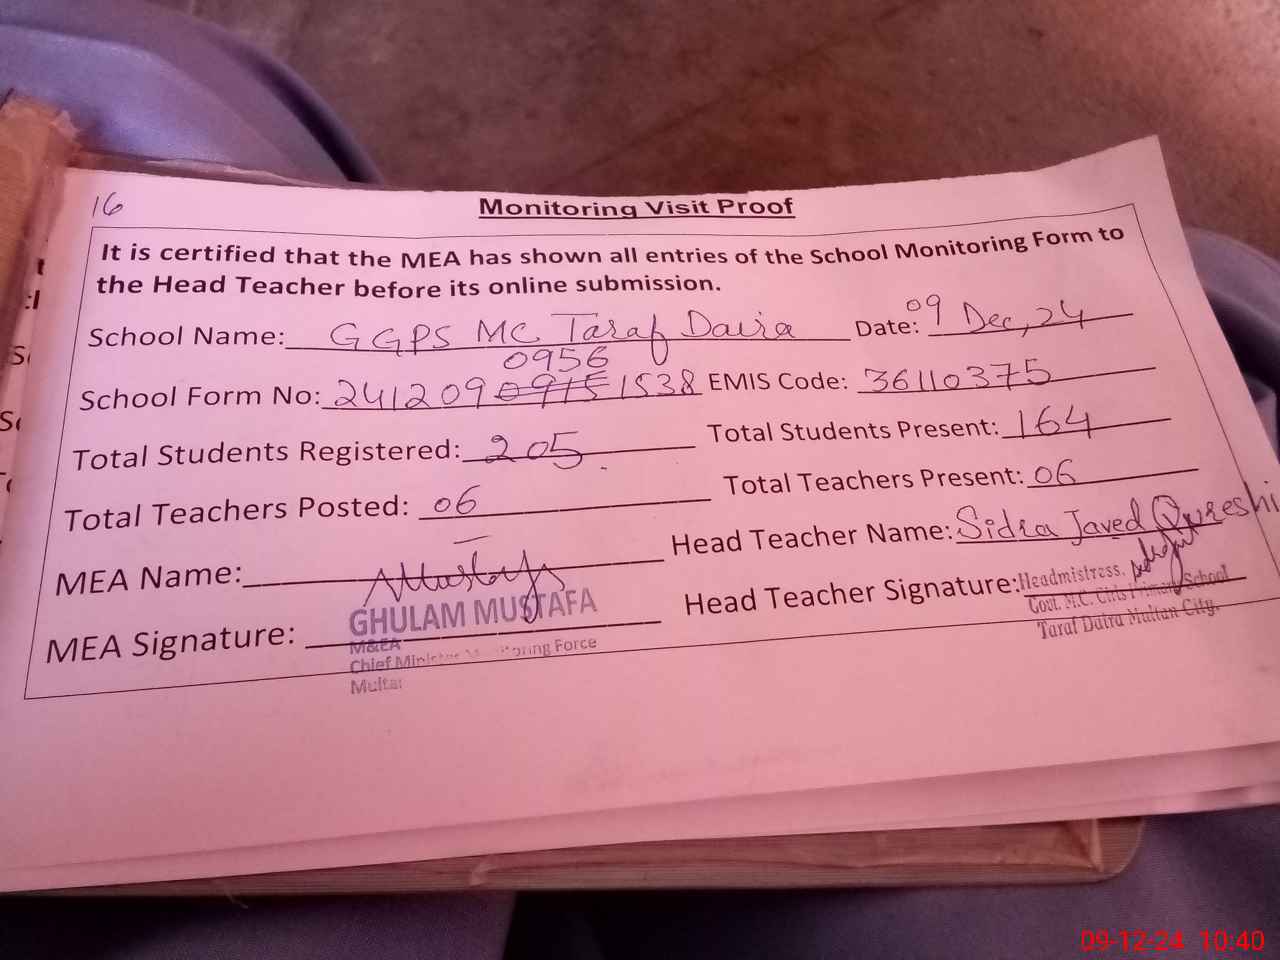 16
Monitoring Visit Proof
It is certified that the MEA has shown all entries of the School Monitoring Form to
the Head Teacher before its online submission.
School Name: GGPS MC Taraf Daira Date: 09 Dec, 24
0956
School Form No: 24120909151538 EMIS Code: 36110375
Total Students Registered: 205 Total Students Present: 164
Total Teachers Posted: 06 Total Teachers Present: 06
MEA Name: Head Teacher Name: Sidra Javed Qureshi
MEA Signature: Head Teacher Signature:
GHULAM MUSTAFA
M&EA
Chief Minister Monitoring Force
Multan
Headmistress.
Govt. M.C. Girls Primary School
Taraf Daira Multan City.
09-12-24 10:40